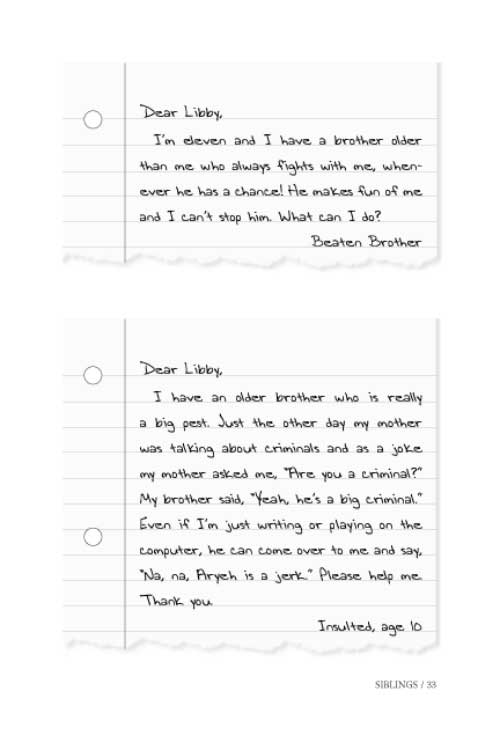 Dear Libby,
I'm eleven and I have a brother older
than me who always fights with me, when-
ever he has a chance! He makes fun of me
and I can't stop him. What can I do?
Beaten Brother
Dear Libby,
I have an older brother who is really
a big pest. Just the other day my mother
was talking about criminals and as a joke
my mother asked me, "Are you a criminal?"
My brother said, "Yeah, he's a big criminal."
Even if I'm just writing or playing on the
computer, he can come over to me and say,
"Na, na, Aryeh is a jerk." Please help me.
Thank you.
Insulted, age 10
SIBLINGS / 33